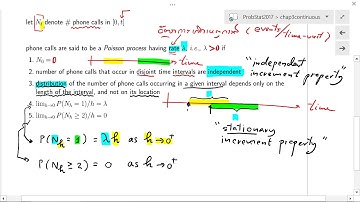 ProbStat2017 > chap3continuous
let N_t denote # phone calls in [0, t]
(events/time-unit)
phone calls are said to be a Poisson process having rate λ, i.e., λ > 0 if
time
1. N₀ = 0
"independent increment property"
2. number of phone calls that occur in disjoint time intervals are independent
3. distribution of the number of phone calls occurring in a given interval depends only on the length of the interval, and not on its location
time
4. lim_{h→0} P(N_h = 1)/h = λ
5. lim_{h→0} P(N_h ≥ 2)/h = 0
"stationary increment property"
P(N_h = 1) = λh as h→0⁺
P(N_h ≥ 2) = 0 as h→0⁺